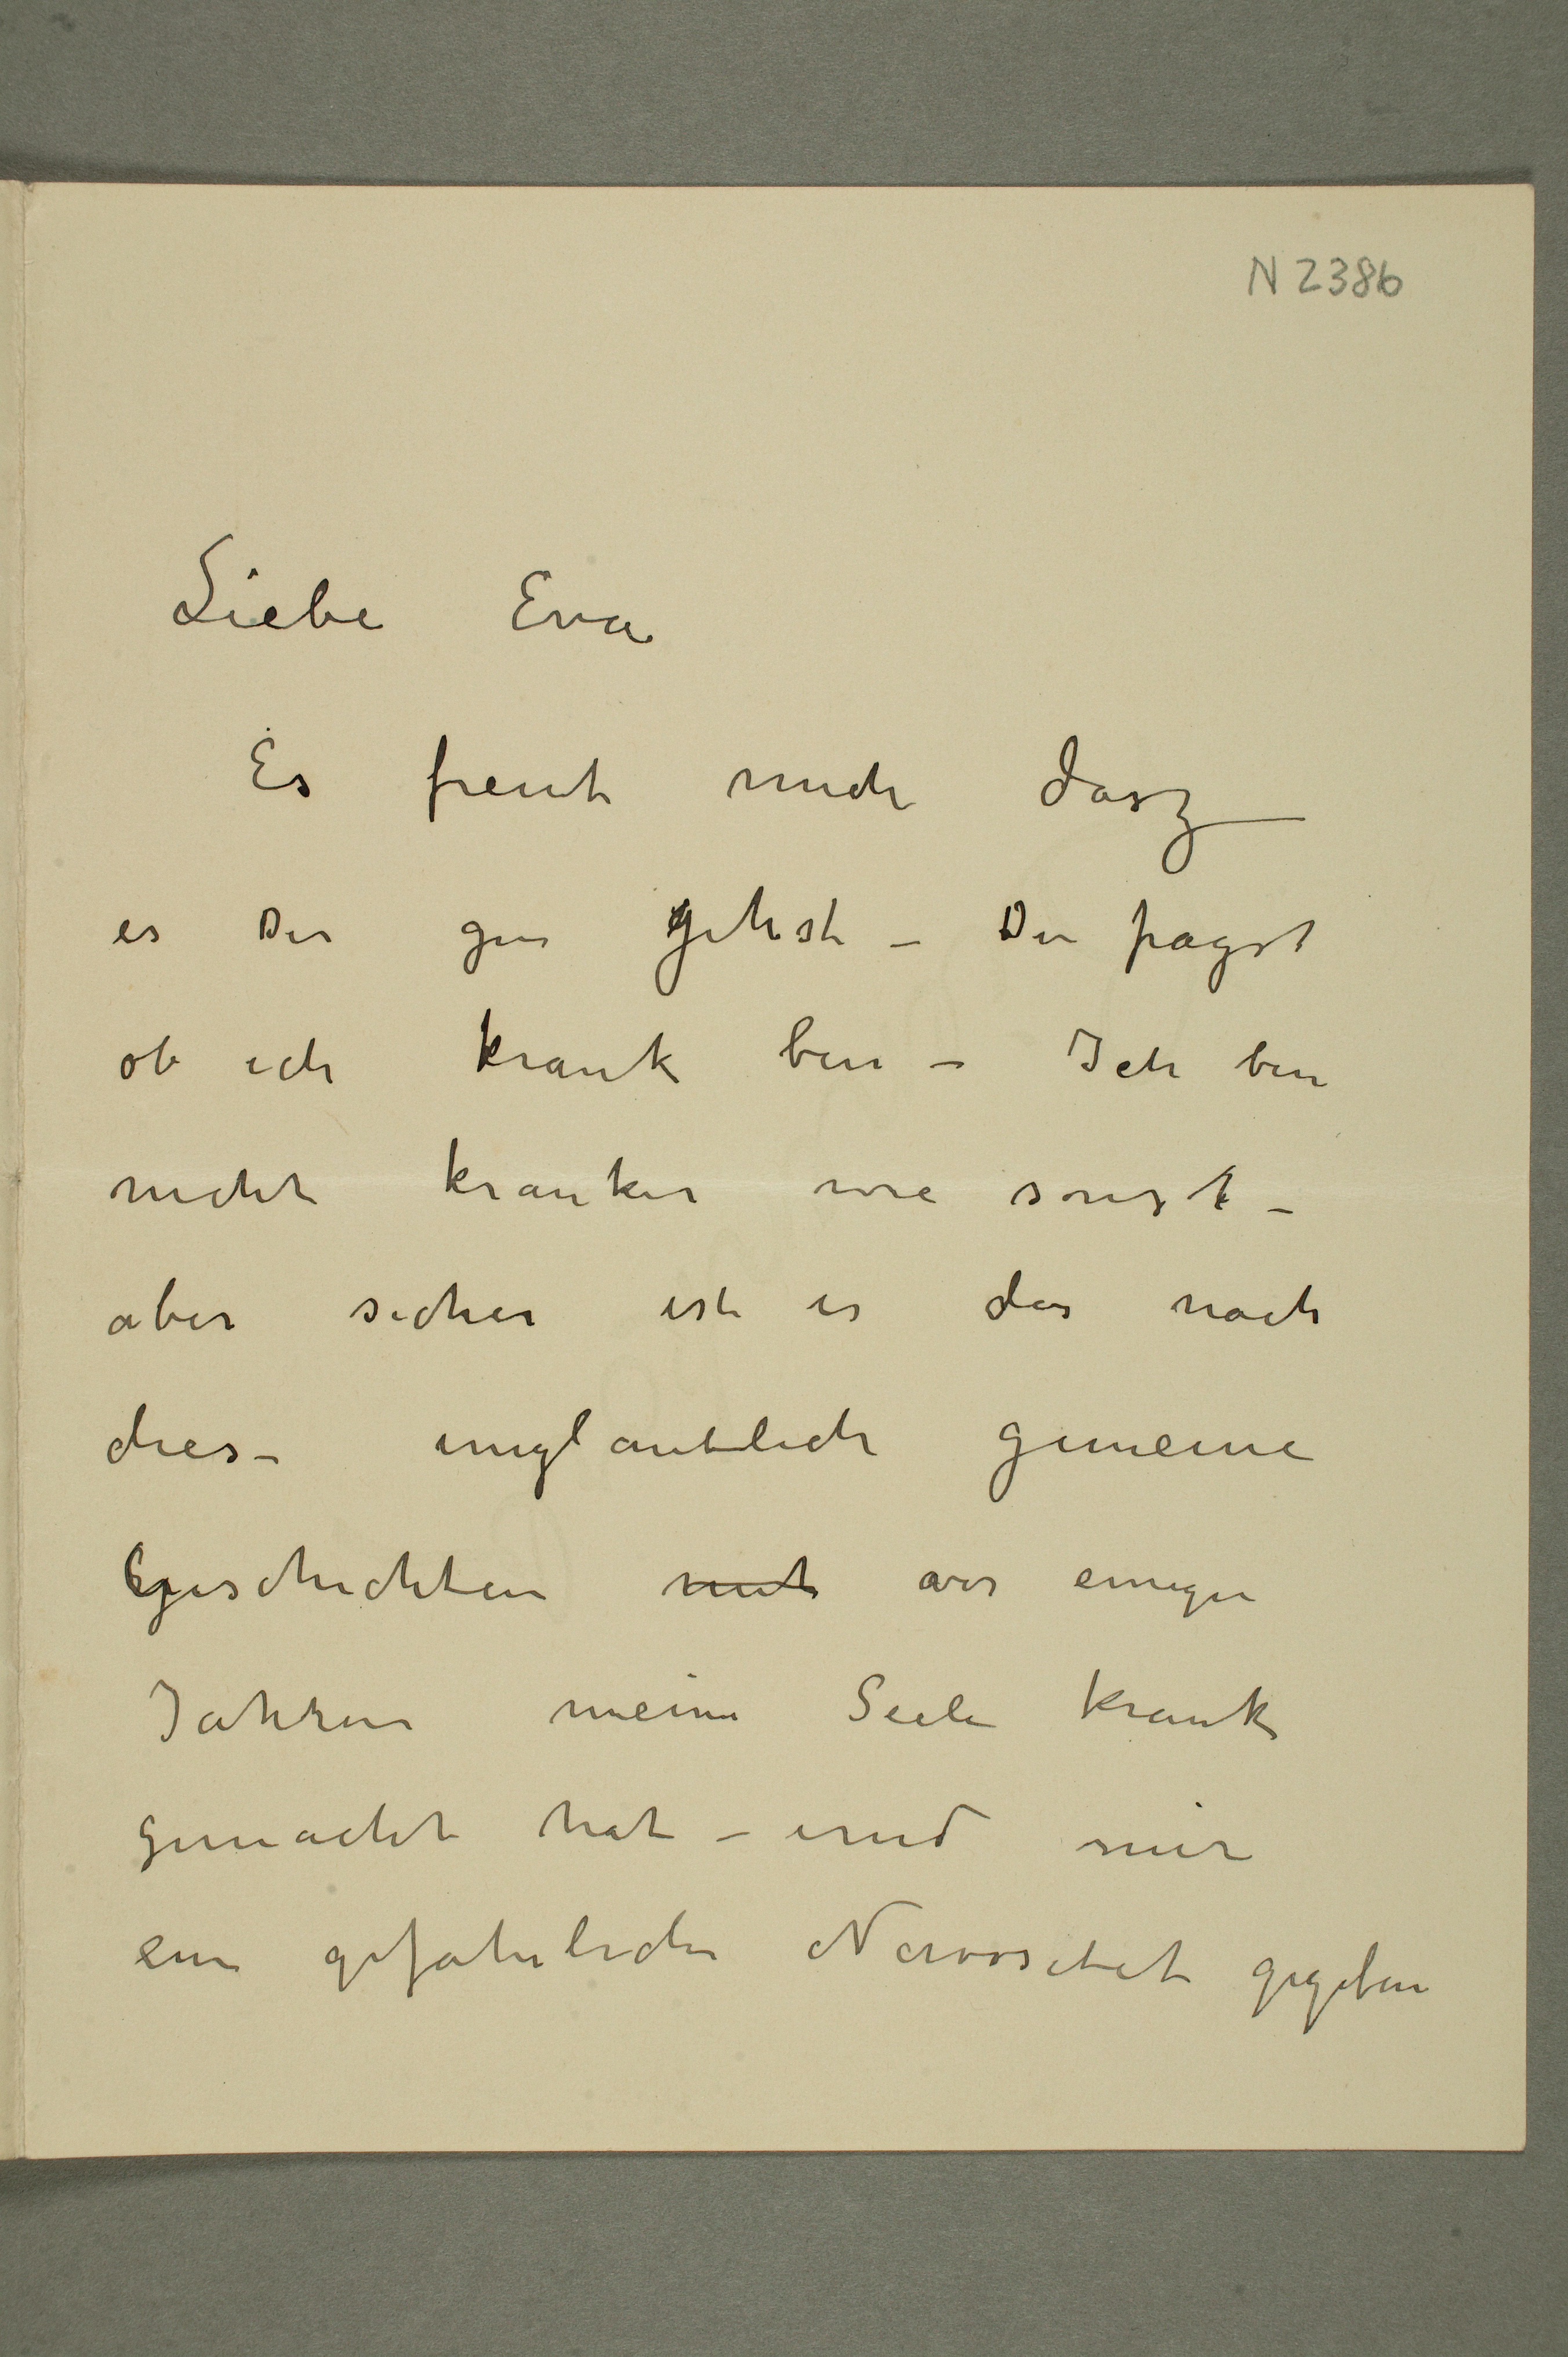 N 2386
Liebe Eva
Es freut mich dasz
es Dir gu gehst – Du fragst
ob ich krank bin – Ich bin
nicht kranker wie sonst –
aber sicher ist es das nach
dies– unglaublich gemeine
Geschichten mit vor einigen
Jahren meine Seele krank
gemacht hat – und mir
eine gefahrliche Nervositet gegeben